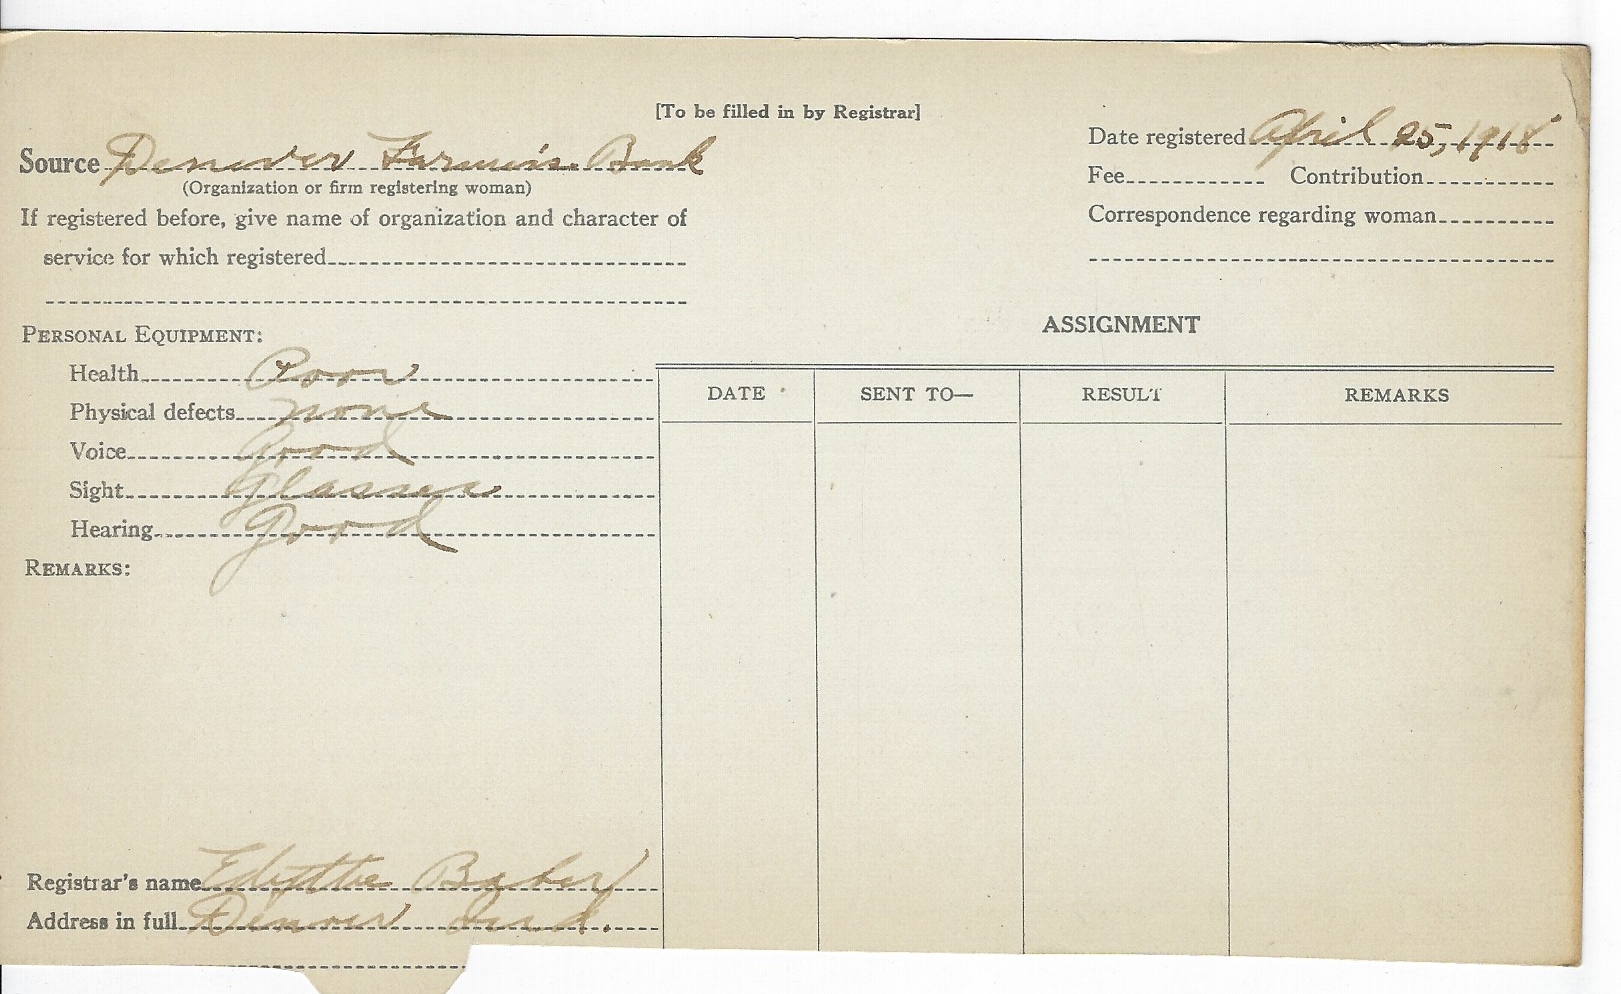 [To be filled in by Registrar]
Source Denver Farmers Bank
(Organization or firm registering woman)
If registered before, give name of organization and character of
service for which registered
Date registered April 25, 1918
Fee Contribution
Correspondence regarding woman
PERSONAL EQUIPMENT:
Health Poor
Physical defects none
Voice Good
Sight Glasses
Hearing Good
REMARKS:
Registrar's name Edythe Baber
Address in full Denver Ind.
ASSIGNMENT
DATE SENT TO— RESULT REMARKS